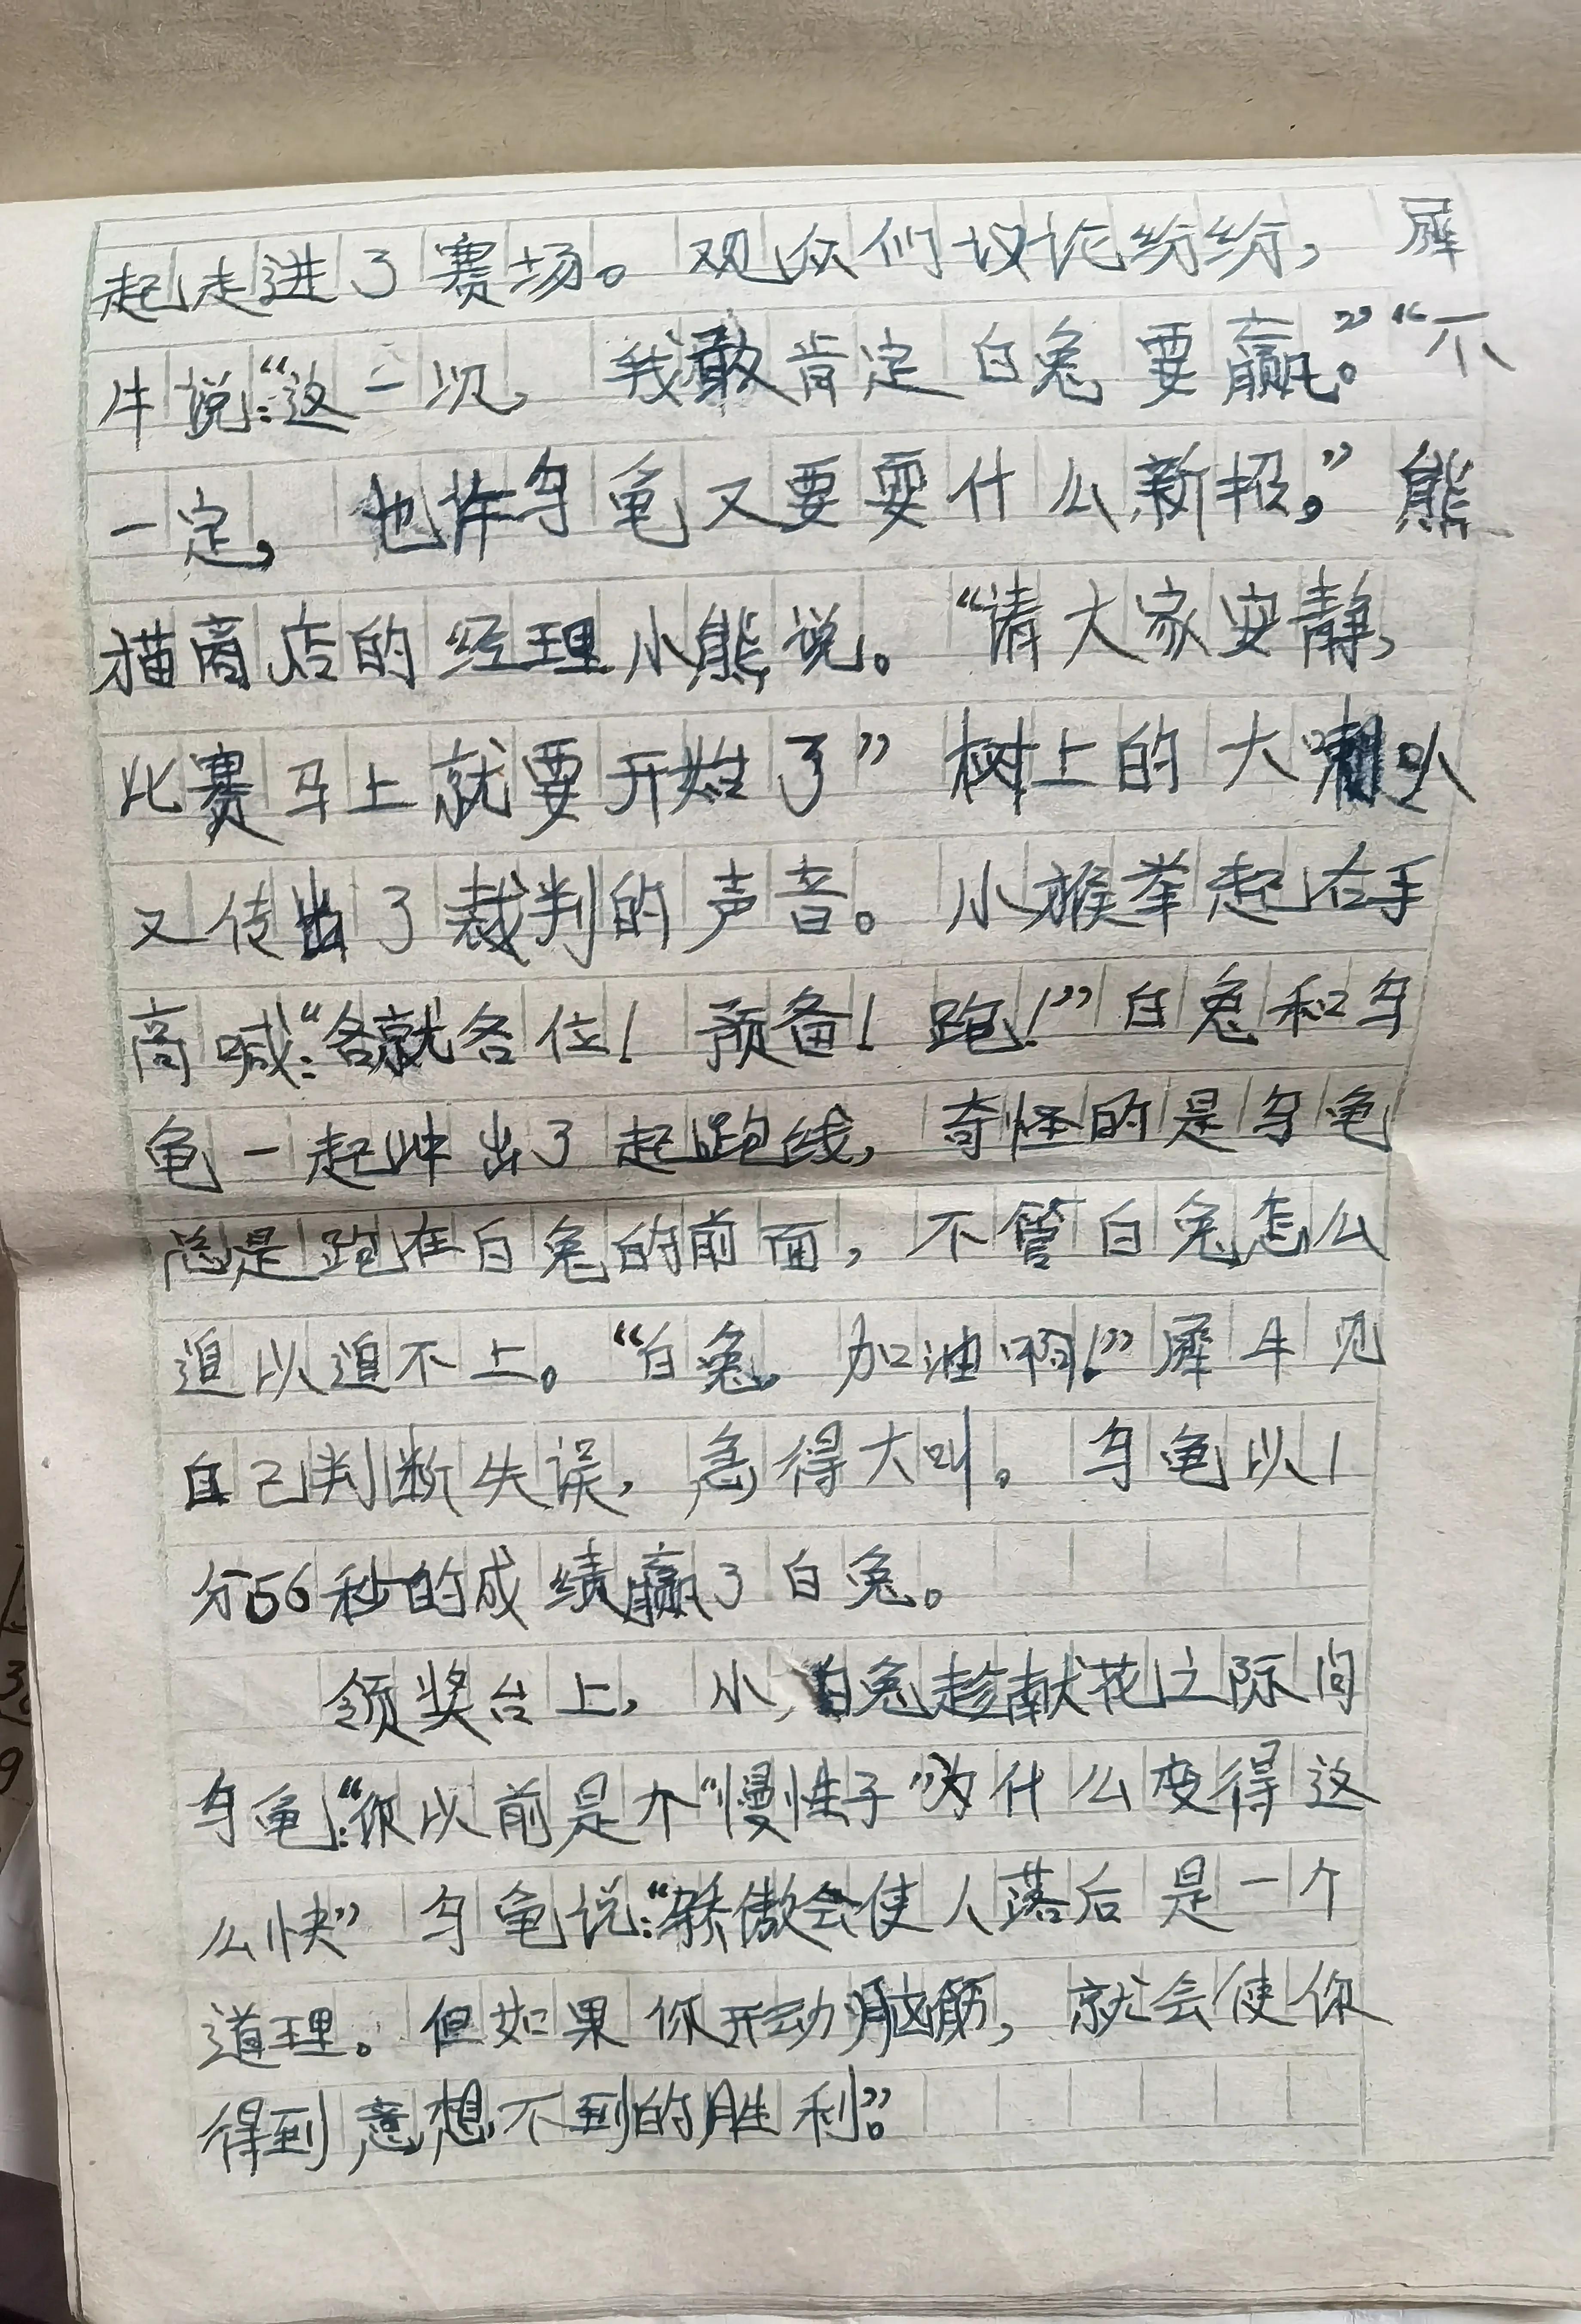 起走进了赛场。观众们议论纷纷，犀
牛说：“这一次，我敢肯定白兔要赢。”“不
一定，也许乌龟又要耍什么新招，”熊
猫商店的经理小熊说。“请大家安静，
比赛马上就要开始了”树上的大喇叭
又传出了裁判的声音。小猴举起右手
高喊：“各就各位！预备！跑！”白兔和乌
龟一起冲出了起跑线，奇怪的是乌龟
总是跑在白兔的前面，不管白兔怎么
追以追不上。“白兔，加油啊！”犀牛见
自己判断失误，急得大叫。乌龟以1
分56秒的成绩赢了白兔。
领奖台上，小白兔趁献花之际问
乌龟：“你以前是个“慢性子”为什么变得这
么快”乌龟说：“骄傲会使人落后是一个
道理。但如果你开动脑筋，就会使你
得到意想不到的胜利”。